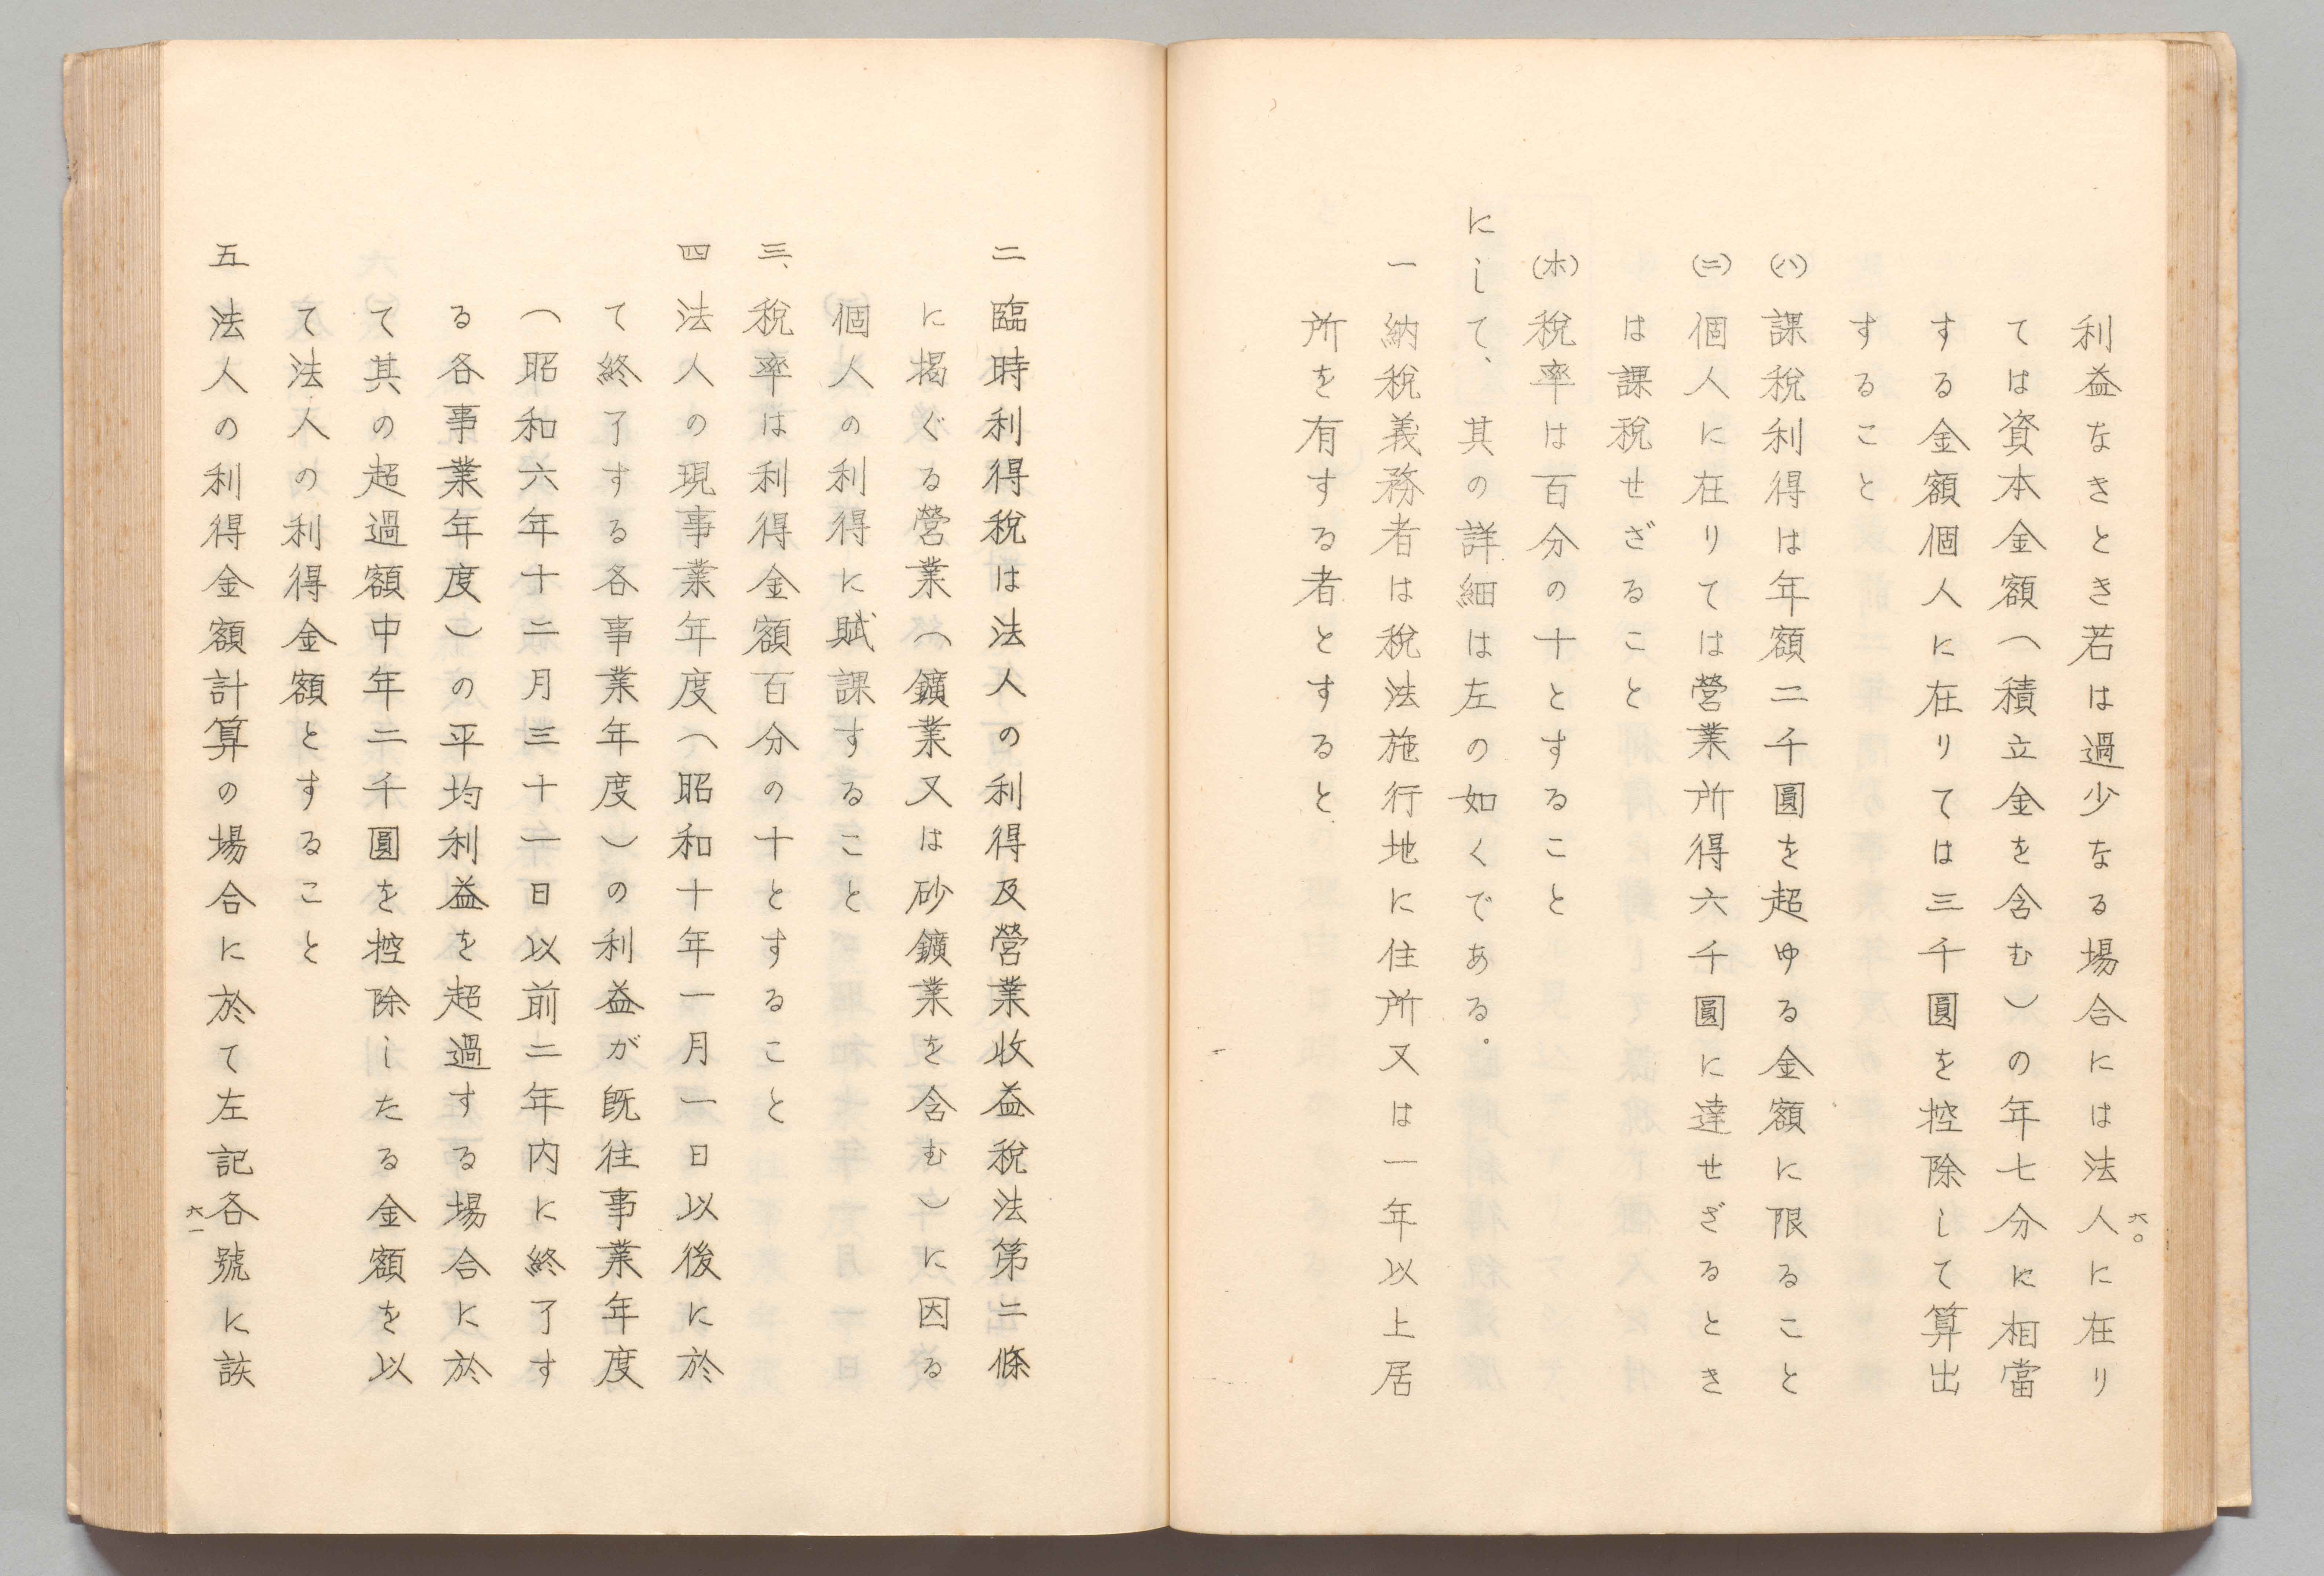 利益なきとき若は過少なる場合には法人に在り
ては資本金額（積立金を含む）の年七分に相當
する金額個人に在りては三千圓を控除して算出
すること
(ハ)課税利得は年額二千圓を超ゆる金額に限ること
(ニ)個人に在りては營業所得六千圓に達せざるとき
は課税せざること
(ホ)税率は百分の十とすること
にして、其の詳細は左の如くである。
一 納税義務者は税法施行地に住所又は一年以上居
所を有する者とすると
六〇
二 臨時利得税は法人の利得及營業收益税法第二條
に揭ぐる營業（鑛業又は砂鑛業を含む）に因る
個人の利得に賦課すること
三、税率は利得金額百分の十とすること
四 法人の現事業年度（昭和十年一月一日以後に於
て終了する各事業年度）の利益が既往事業年度
（昭和六年十二月三十一日以前二年内に終了す
る各事業年度）の平均利益を超過する場合に於
て其の超過額中年二千圓を控除したる金額を以
て法人の利得金額とすること
五 法人の利得金額計算の場合に於て左記各號に該
六一